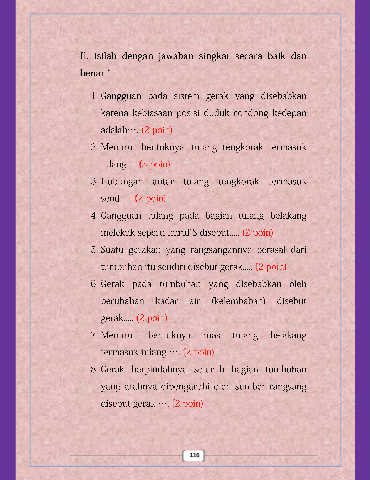 II. Isilah dengan jawaban singkat secara baik dan
benar !
1. Gangguan pada sistem gerak yang disebabkan
karena kebiasaan posisi duduk condong kedepan
adalah…. (2 poin)
2. Menurut bentuknya tulang tengkorak termasuk
tulang.... (2 poin)
3. Hubungan antar tulang tengkorak termasuk
sendi.... (2 poin)
4. Gangguan tulang pada bagian tulang belakang
melekuk seperti huruf S disebut..... (2 poin)
5. Suatu gerakan yang rangsangannya berasal dari
tumbuhan itu sendiri disebut gerak..... (2 poin)
6. Gerak pada tumbuhan yang disebabkan oleh
perubahan kadar air (kelembaban) disebut
gerak..... (2 poin)
7. Menurut bentuknya ruas tulang belakang
termasuk tulang …. (2 poin)
8. Gerak berpindahnya seluruh bagian tumbuhan
yang arahnya dipengaruhi oleh sumber rangsang
disebut gerak …. (2 poin)
116